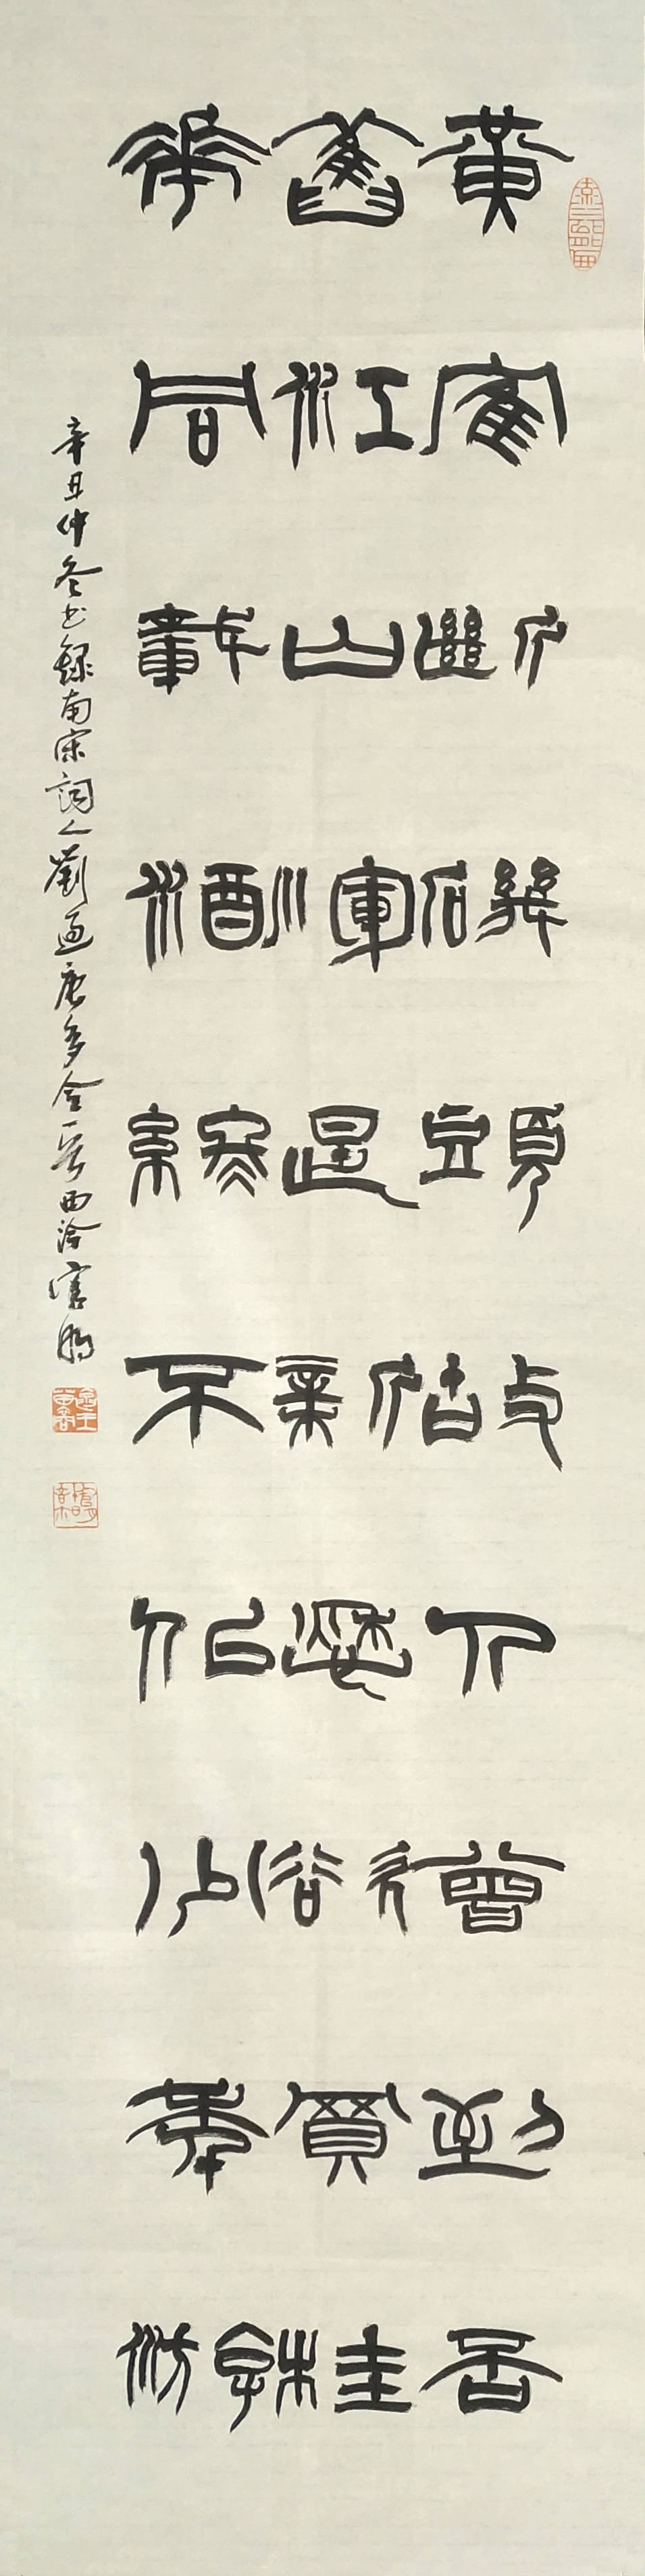 黃隺斷磯頭故人曾到否
舊江山渾是新愁欲買桂
華同載酒終不佀少秊游
辛丑仲冬书錄南宋詞人劉過唐多令一首西泠